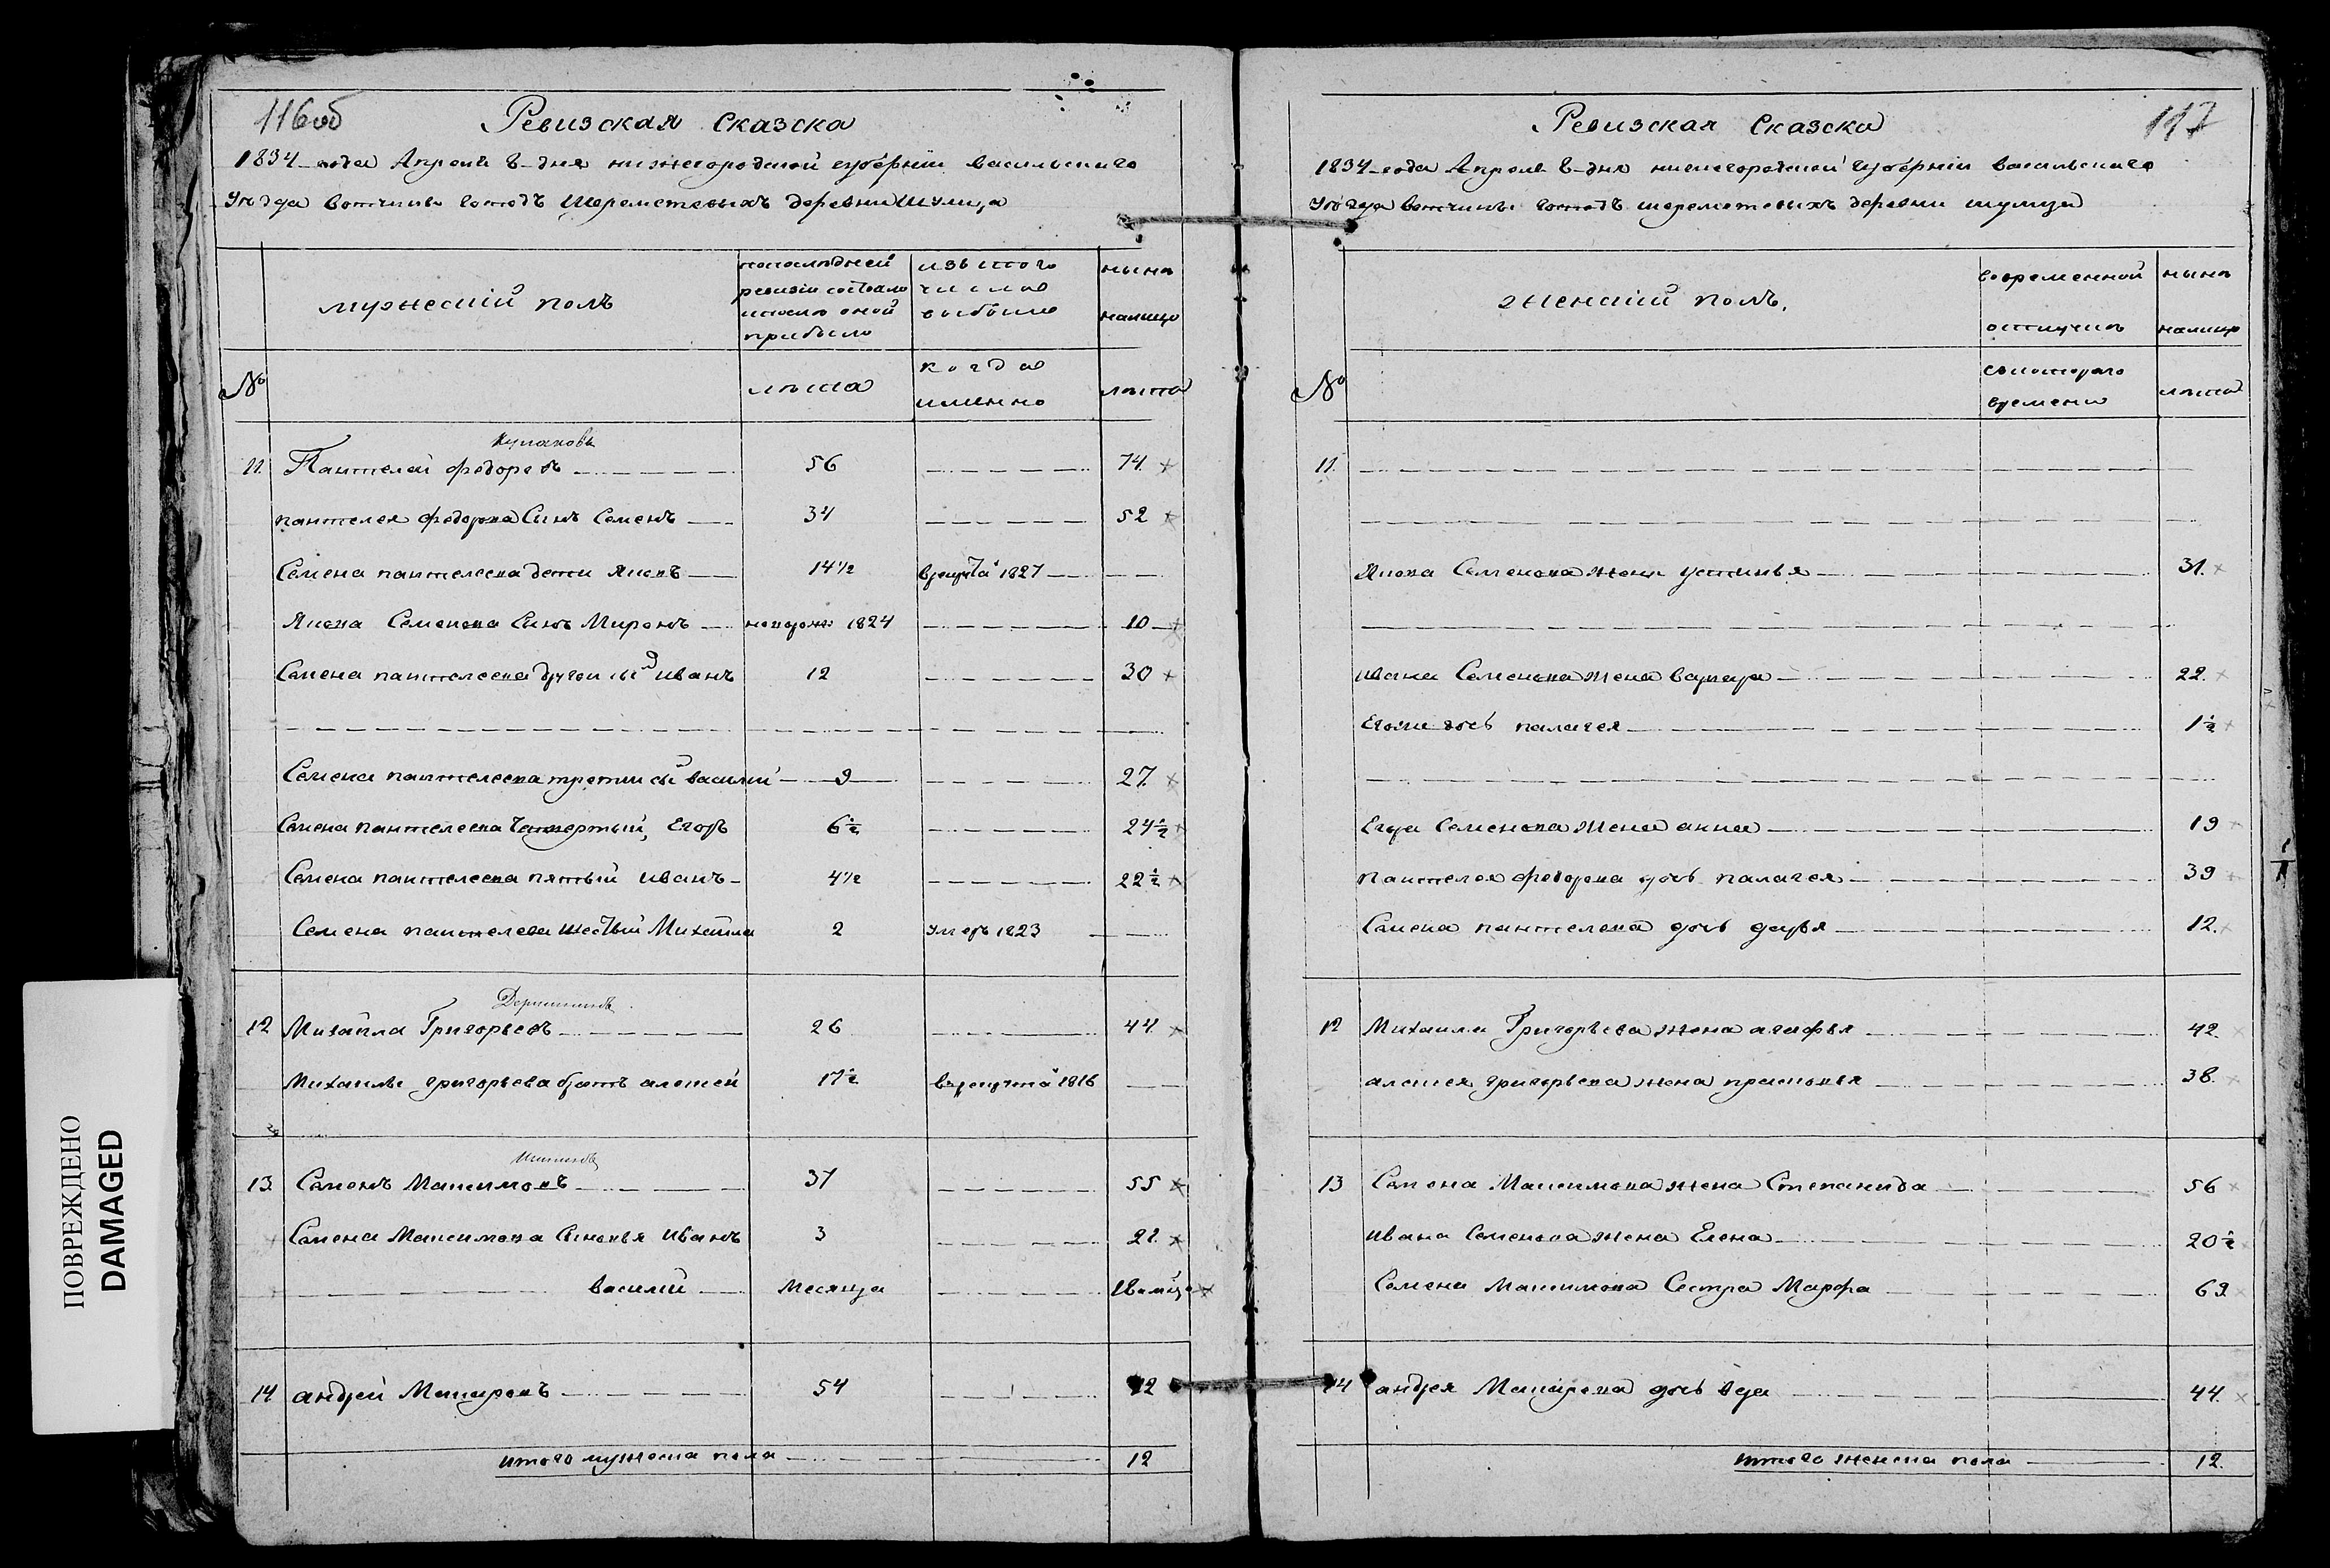 116об
Ревизская Сказска
1834 года Апреля 8 дня нижегородской губернии васильскаго
Уѣзда вотчины господъ Шереметевыхъ деревни Шумца
мужеский полъ
попоследней
ревизии состояло
ипосле оной
прибыло
изътого
числа
выбыло
нынѣ
налицо
№
лѣта
когда
именно
лѣта
11. Пантелей федоровъ 56 74
пантелея федорова Сынъ Семенъ 34 52
Семена пантелеева дети Яковъ 14½ врекруты 1827
Якова Семенова Сынъ Миронъ 1824 10
Семена пантелеева другой сынъ иванъ 12 30
Семена пантелеева третий сынъ василий 9 27
Семена пантелеева Четвертый, Егоръ 6½ 24½
Семена пантелеева пятый иванъ 4½ 22½
Семена пантелеева шестый Михайла 2 умеръ 1823
12 Михайла Григорьевъ 26 44
Михайлы григорьева братъ алексей 17½ врекруты 1816
13 Семенъ Максимовъ 37 55
Семена Максимова Сыновья иванъ 3 21
василий месяца 18
14 андрей Макаровъ 54 72
итого мужеска пола 12
117
Ревизская Сказска
1834 года Апреля 8 дня нижегородской губернии васильскаго
Уѣзда вотчины господъ шереметевыхъ деревни шумца
женский полъ.
вовременной
отлучкѣ
нынѣ
налицо
№
скотораго
времени
лѣта
11.
Якова Семенова жена устинья 31.
ивана Семенова жена варвара 22.
Егоже дочь палагея 1½
Егора Семенова жена анна 19
пантелея федорова дочь палагея 39
Семена пантелеева дочь дарья 12.
12 Михаилы Григорьева жена агафья 42.
алексея григорьева жена прасковья 38.
13 Семена Максимова жена Степанида 56
ивана Семенова жена Елена 20½
Семена Максимова Сестра Марфа 69
14 андрея Макарова дочь вера 44.
итого женска пола 12.
ПОВРЕЖДЕНО
DAMAGED